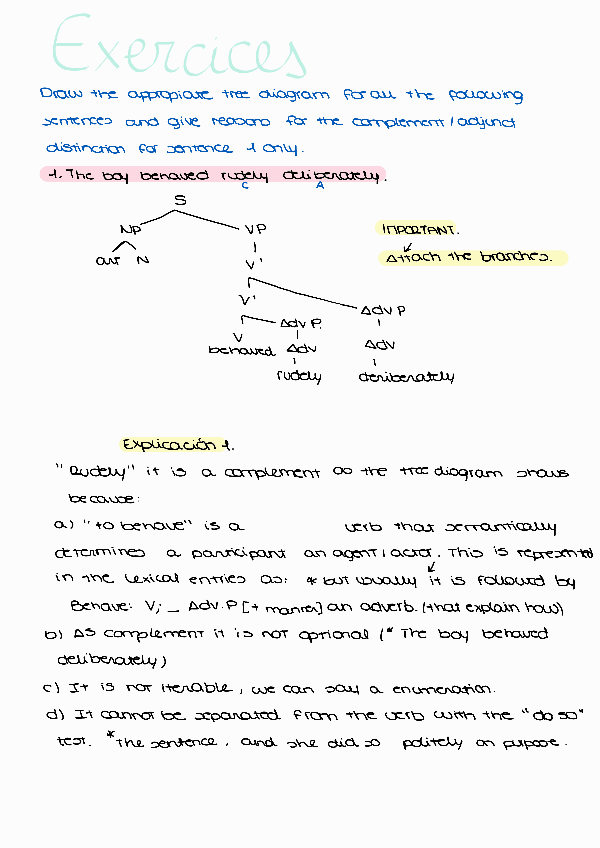 Exercices
Draw the appropiate tree diagram for all the following
sentences and give reasons for the complement/adjunct
distinction for sentence 1 only.
1. The boy behaved rudely deliberately.
C A
S
NP VP IMPORTANT.
art N V' Attach the branches.
V' AdvP
V AdvP Adv
behaved Adv
rudely deliberately
Explicación 1.
"Rudely" it is a complement as the tree diagram shows
because:
a) "to behave" is a verb that semantically
determines a participant an agent/actor. This is represented
in the lexical entries as: * but usually it is followed by
Behave: V; _ Adv.P [+ manner] an adverb. (that explain how)
b) As complement it is not optional (* The boy behaved
deliberately)
c) It is not iterable, we can say a enumeration.
d) It cannot be separated from the verb with the "do so"
test. *The sentence, and she did so politely on purpose.